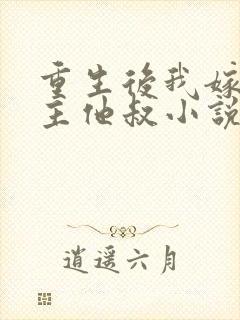 重生後我嫁
主他叔小說
逍遥六月